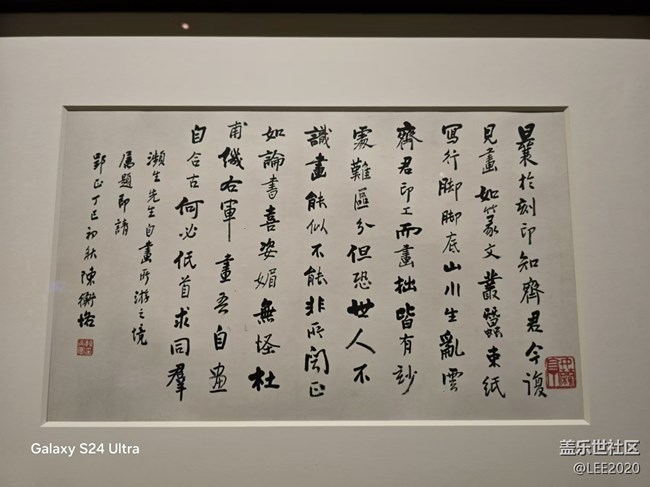 曩於刻印知齊君今復
見畫如篆文叢蠶束紙
寫行脚脚底山川生亂雲
齊君印工而畫拙皆有妙
處難區分但恐世人不
識畫能似不能非所聞正
如論書喜姿媚無怪杜
甫譏右軍畫吾自畫
自合古何必低首求同羣
瀕生先生自畫所游之境
屬題即請
郢正丁巳初秋陳衡恪
Galaxy S24 Ultra
盖乐世社区
@LEE2020